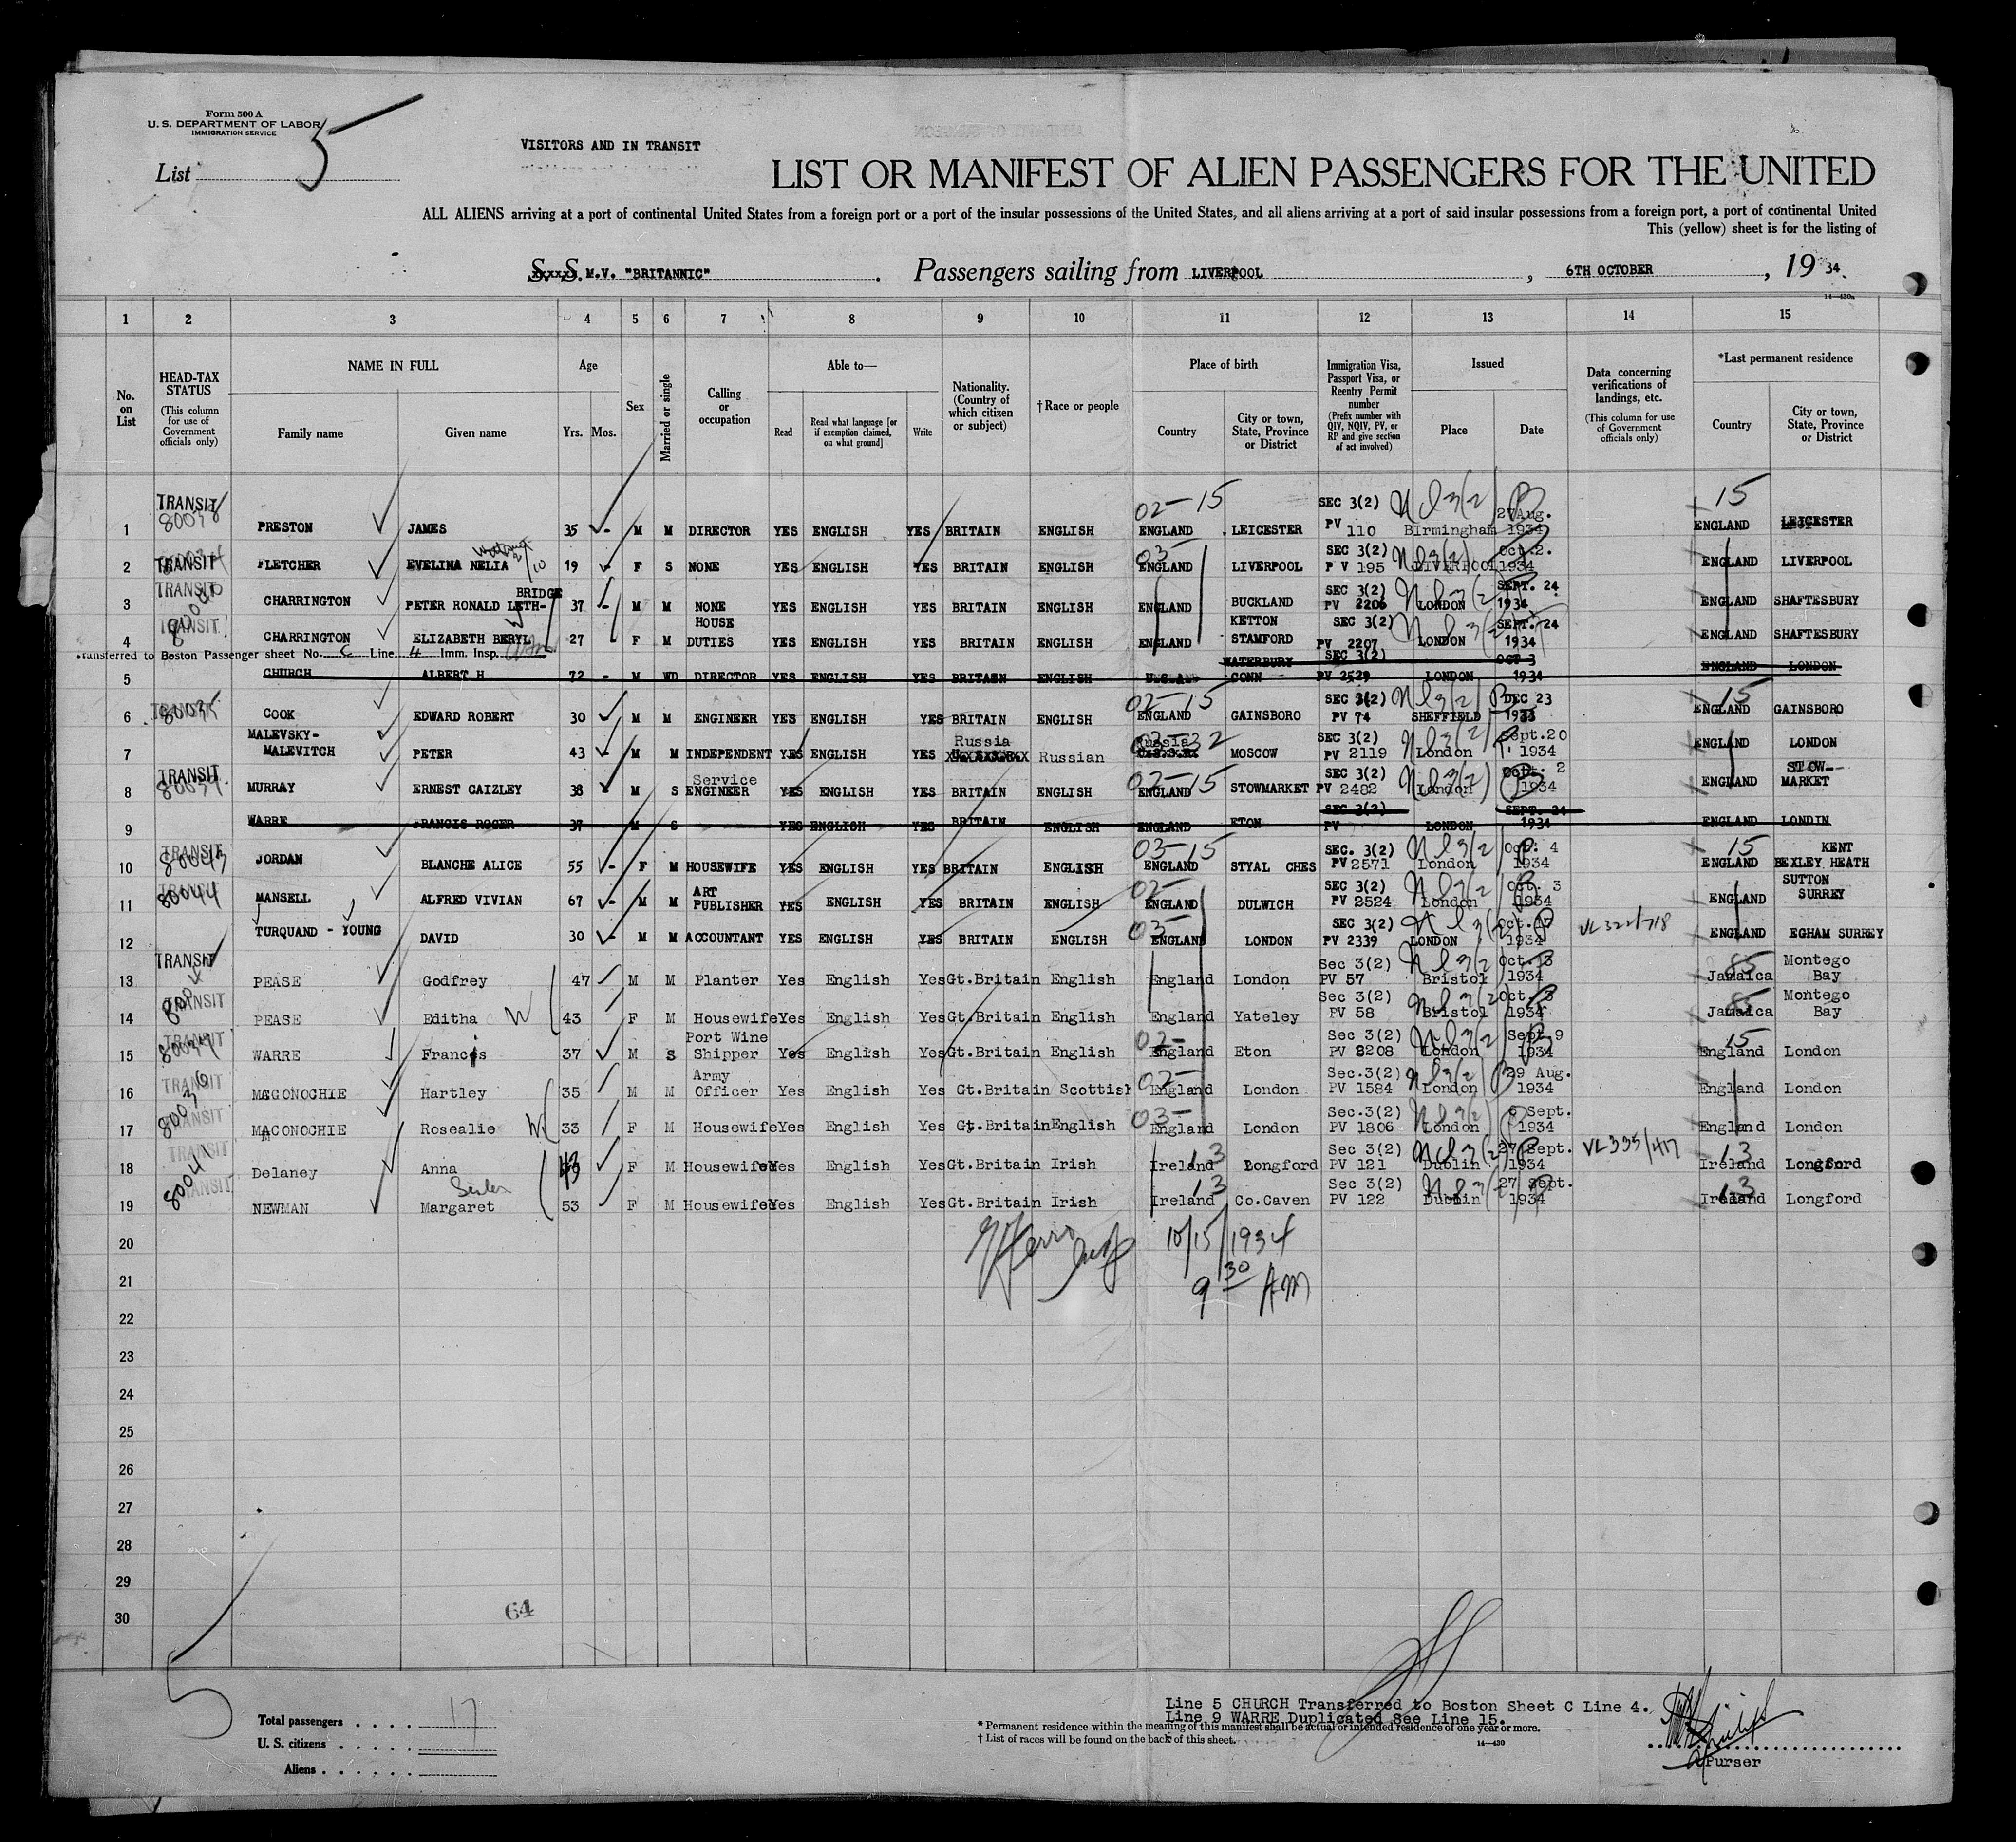 Form 500 A
U. S. DEPARTMENT OF LABOR
IMMIGRATION SERVICE
List 5
VISITORS AND IN TRANSIT
LIST OR MANIFEST OF ALIEN PASSENGERS FOR THE UNITED
ALL ALIENS arriving at a port of continental United States from a foreign port or a port of the insular possessions of the United States, and all aliens arriving at a port of said insular possessions from a foreign port, a port of continental United
This (yellow) sheet is for the listing of
S. S. M.V. "BRITANNIC" . Passengers sailing from LIVERPOOL , 6TH OCTOBER , 19 34.
14—430a
1 2 3 4 5 6 7 8 9 10 11 12 13 14 15
No. on List
HEAD-TAX STATUS (This column for use of Government officials only)
NAME IN FULL Family name Given name
Age Yrs. Mos.
Sex
Married or single
Calling or occupation
Able to— Read Read what language [or if exemption claimed, on what ground] Write
Nationality. (Country of which citizen or subject)
†Race or people
Place of birth Country City or town, State, Province or District
Immigration Visa, Passport Visa, or Reentry Permit number (Prefix number with QIV, NQIV, PV, or RP and give section of act involved)
Issued Place Date
Data concerning verifications of landings, etc. (This column for use of Government officials only)
*Last permanent residence Country City or town, State, Province or District
1 TRANSIT 80038 PRESTON JAMES 35 - M M DIRECTOR YES ENGLISH YES BRITAIN ENGLISH 02-15 ENGLAND LEICESTER SEC 3(2) PV 110 Birmingham 27 Aug. 1934 15 ENGLAND LEICESTER
2 TRANSIT FLETCHER EVELINA NELIA 19 - F S NONE YES ENGLISH YES BRITAIN ENGLISH 03- ENGLAND LIVERPOOL SEC 3(2) P V 195 LIVERPOOL Oct.2. 1934 ENGLAND LIVERPOOL
3 TRANSIT 80040 CHARRINGTON PETER RONALD LETH-BRIDGE 37 - M M NONE YES ENGLISH YES BRITAIN ENGLISH ENGLAND BUCKLAND SEC 3(2) PV 2206 LONDON SEPT. 24 1934 ENGLAND SHAFTESBURY
4 TRANSIT CHARRINGTON ELIZABETH BERYL W 27 F M HOUSE DUTIES YES ENGLISH YES BRITAIN ENGLISH ENGLAND KETTON STAMFORD SEC 3(2) PV 2207 LONDON SEPT. 24 1934 ENGLAND SHAFTESBURY
Transferred to Boston Passenger sheet No. C Line 4 Imm. Insp.
5 CHURCH ALBERT H 72 - M WD DIRECTOR YES ENGLISH YES BRITAIN ENGLISH U.S.A. WATERBURY CONN SEC 3(2) PV 2529 LONDON OCT 3 1934 ENGLAND LONDON
6 TRANSIT 80035 COOK EDWARD ROBERT 30 M M ENGINEER YES ENGLISH YES BRITAIN ENGLISH 02-15 ENGLAND GAINSBORO SEC 3(2) PV 74 SHEFFIELD DEC 23 1933 15 ENGLAND GAINSBORO
7 MALEVSKY-MALEVITCH PETER 43 - M M INDEPENDENT YES ENGLISH YES Russia Russian Russia 03-32 U.S.S.R. MOSCOW SEC 3(2) PV 2119 London Sept.20 1934 ENGLAND LONDON
8 TRANSIT 80039 MURRAY ERNEST CAIZLEY 38 - M S Service ENGINEER YES ENGLISH YES BRITAIN ENGLISH 02-15 ENGLAND STOWMARKET SEC 3(2) PV 2482 London Oct. 2 1934 ENGLAND STOW-MARKET
9 WARRE FRANCIS ROGER 37 M S YES ENGLISH YES BRITAIN ENGLISH ENGLAND ETON SEC 3(2) PV LONDON SEPT. 24 1934 ENGLAND LONDIN
10 TRANSIT 80043 JORDAN BLANCHE ALICE 55 - F M HOUSEWIFE YES ENGLISH YES BRITAIN ENGLISH 03-15 ENGLAND STYAL CHES SEC. 3(2) PV 2571 London Oct. 4 1934 15 ENGLAND KENT BEXLEY HEATH
11 TRANSIT 80044 MANSELL ALFRED VIVIAN 67 - M M ART PUBLISHER YES ENGLISH YES BRITAIN ENGLISH 02- ENGLAND DULWICH SEC 3(2) PV 2524 London Oct. 3 1934 ENGLAND SUTTON SURREY
12 TURQUAND - YOUNG DAVID 30 - M M ACCOUNTANT YES ENGLISH YES BRITAIN ENGLISH 03- ENGLAND LONDON SEC 3(2) PV 2339 LONDON Oct. 1934 VL 322/718 ENGLAND EGHAM SURREY
13 TRANSIT PEASE Godfrey 47 M M Planter Yes English Yes Gt.Britain English England London Sec 3(2) PV 57 Bristol Oct. 3 1934 85 Jamaica Montego Bay
14 TRANSIT PEASE Editha W 43 F M Housewife Yes English Yes Gt.Britain English England Yateley Sec 3(2) PV 58 Bristol Oct. 3 1934 85 Jamaica Montego Bay
15 TRANSIT WARRE Francis 37 M S Port Wine Shipper Yes English Yes Gt.Britain English 02- England Eton Sec 3(2) PV 2208 London Sept.9 1934 15 England London
16 TRANSIT MACONOCHIE Hartley 35 M M Army Officer Yes English Yes Gt.Britain Scottish 02- England London Sec.3(2) PV 1584 London 29 Aug. 1934 England London
17 TRANSIT MACONOCHIE Rosealie W 33 F M Housewife Yes English Yes Gt.Britain English 03- England London Sec.3(2) PV 1806 London 6 Sept. 1934 England London
18 TRANSIT Delaney Anna 43 F M Housewife Yes English Yes Gt.Britain Irish 13 Ireland Longford Sec 3(2) PV 121 Dublin 27 Sept. 1934 VL 335/417 13 Ireland Longford
19 TRANSIT NEWMAN Sister Margaret 53 F M Housewife Yes English Yes Gt.Britain Irish 13 Ireland Co.Caven Sec 3(2) PV 122 Dublin 27 Sept. 1934 13 Ireland Longford
20 10/15/1934
21 9 30 AM
22
23
24
25
26
27
28
29
30 64
Line 5 CHURCH Transferred to Boston Sheet C Line 4.
Line 9 WARRE Duplicated See Line 15.
Total passengers . . . . 17
U. S. citizens . . . . .
Aliens . . . . . .
* Permanent residence within the meaning of this manifest shall be actual or intended residence of one year or more.
† List of races will be found on the back of this sheet.
14—430
Purser